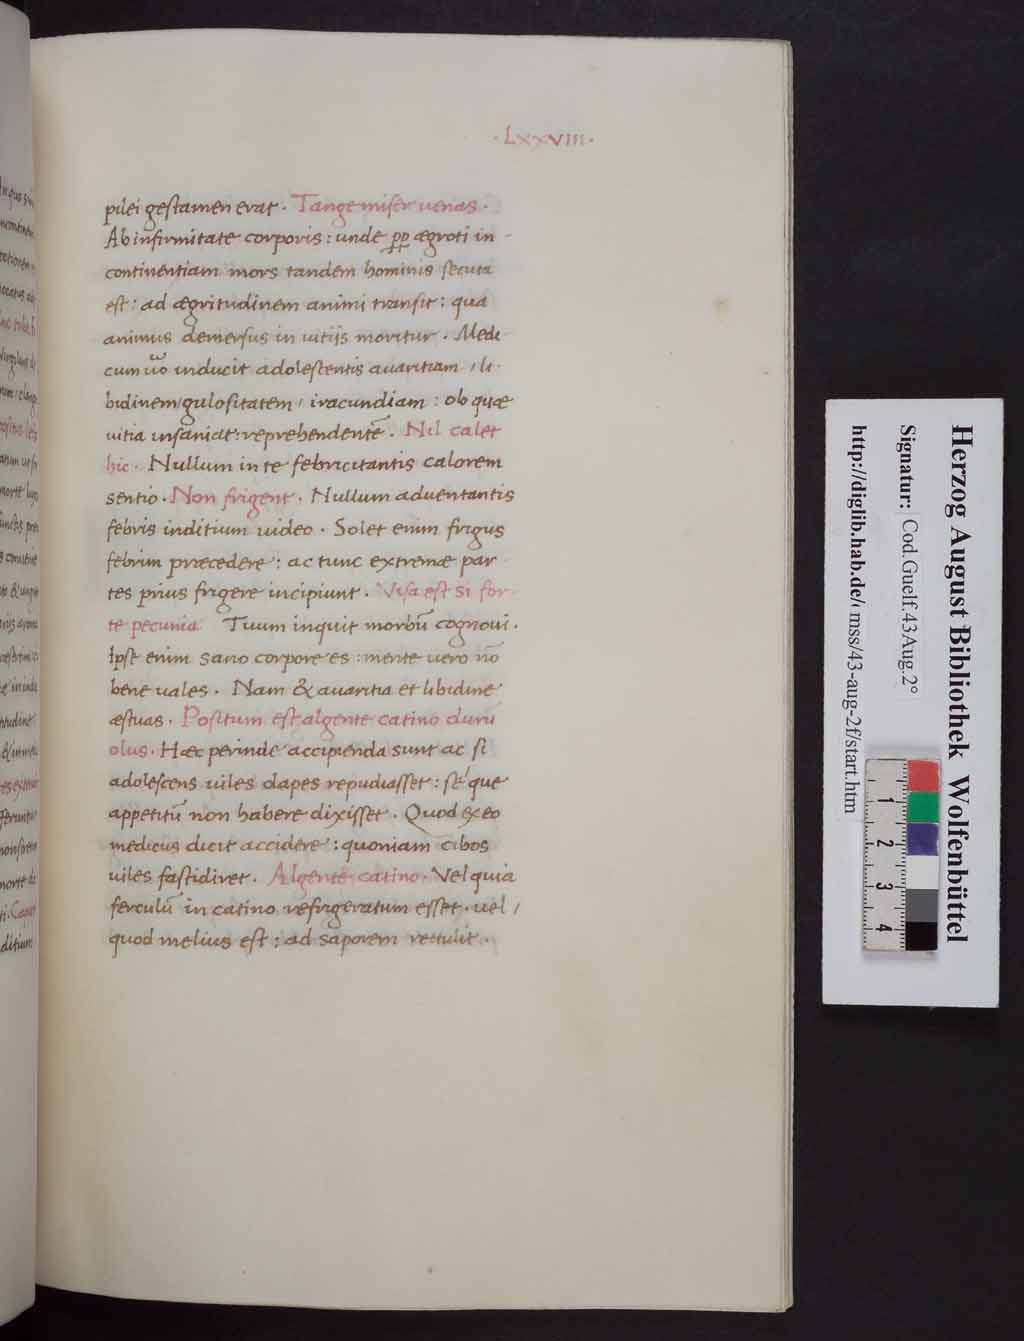 ·Lxxviii·
pilei gestamen erat · Tange miser uenas ·
Ab infirmitate corporis : unde ꝓꝑ ægroti in-
continentiam mors tandem hominis secuta
est : ad ægritudinem animi transit : qua
animus demersus in uitijs moritur . Medi
cum u͞o inducit adolescentis auaritiam / li-
bidinem / gulositatem / iracundiam : ob quæ
uitia insaniat : reprehendentē . Nil calet
hic . Nullum in te febricitantis calorem
sentio . Non frigent . Nullum aduentantis
febris inditium uideo . Solet enim frigus
febrim præcedere : ac tunc extremæ par-
tes prius frigere incipiunt . Visa est si for-
te pecunia Tuum inquit morbū cognoui .
Ipse enim sano corpore es : mente uero nō
bene uales . Nam & auaritia et libidine
æstuas . Positum est algente catino durū
olus . Hæc perinde accipienda sunt ac si
adolescens uiles dapes repudiasset : seque
appetitū non habere dixisset . Quod ex eo
medicus dicit accidere : quoniam cibos
uiles fastidiret . Algente catino . Vel quia
ferculū in catino refrigeratum esset . uel /
quod melius est : ad saporem rettulit .
Herzog August Bibliothek Wolfenbüttel
Signatur: Cod.Guelf.43Aug.2°
http://diglib.hab.de/mss/43-aug-2f/start.htm
1
2
3
4